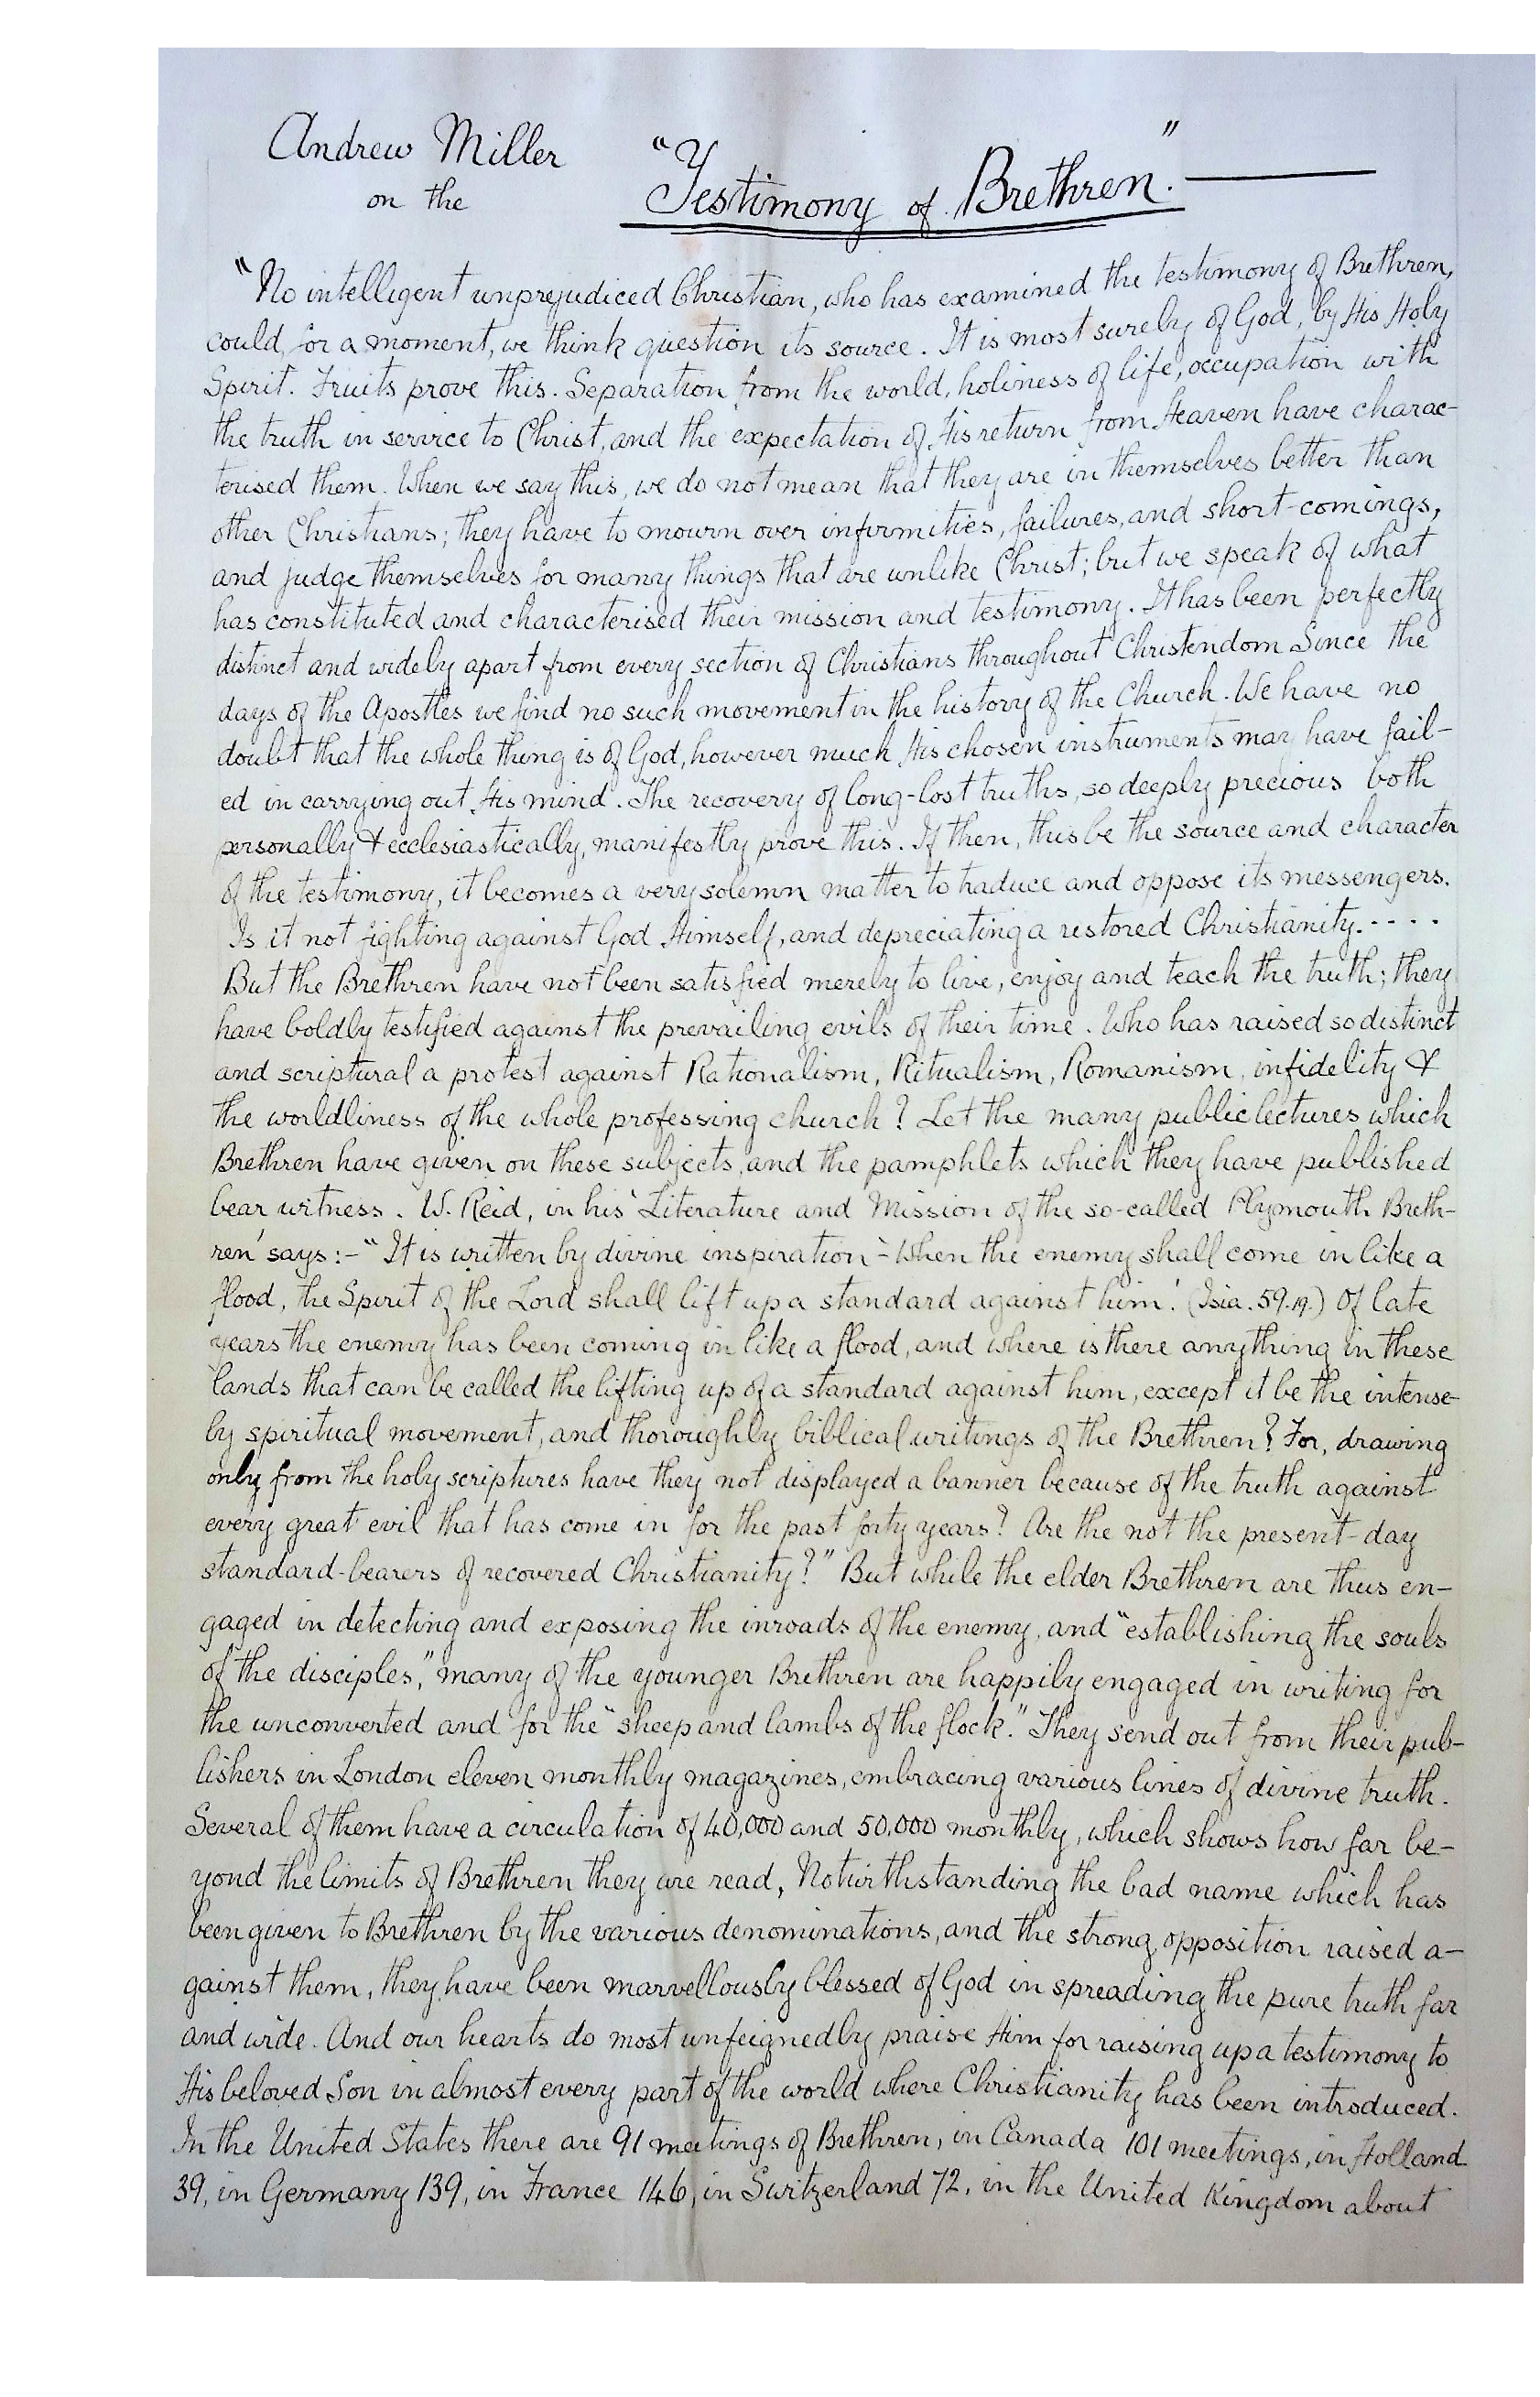 Andrew Miller
on the
"Testimony of Brethren."
"No intelligent unprejudiced Christian, who has examined the testimony of Brethren,
could, for a moment, we think question its source. It is most surely of God, by His Holy
Spirit. Fruits prove this. Separation from the world, holiness of life, occupation with
the truth in service to Christ, and the expectation of His return from Heaven have charac-
terised them. When we say this, we do not mean that they are in themselves better than
other Christians; they have to mourn over infirmities, failures, and short-comings,
and judge themselves for many things that are unlike Christ; but we speak of what
has constituted and characterised their mission and testimony. It has been perfectly
distinct and widely apart from every section of Christians throughout Christendom Since the
days of the Apostles we find no such movement in the history of the Church. We have no
doubt that the whole thing is of God, however much His chosen instruments may have fail-
ed in carrying out His mind. The recovery of long-lost truths, so deeply precious both
personally & ecclesiastically, manifestly prove this. If then, this be the source and character
of the testimony, it becomes a very solemn matter to traduce and oppose its messengers.
Is it not fighting against God Himself, and depreciating a restored Christianity. - - - -
But the Brethren have not been satisfied merely to live, enjoy and teach the truth; they
have boldly testified against the prevailing evils of their time. Who has raised so distinct
and scriptural a protest against Rationalism, Ritualism, Romanism, infidelity &
the worldliness of the whole professing church? Let the many public lectures which
Brethren have given on these subjects, and the pamphlets which they have published
bear witness. W. Reid, in his 'Literature and Mission of the so-called Plymouth Breth-
ren' says:- "It is written by divine inspiration - 'When the enemy shall come in like a
flood, the Spirit of the Lord shall lift up a standard against him.' (Isia. 59.19.) Of late
years the enemy has been coming in like a flood, and where is there anything in these
lands that can be called the lifting up of a standard against him, except it be the intense-
ly spiritual movement, and thoroughly biblical writings of the Brethren? For, drawing
only from the holy scriptures have they not displayed a banner because of the truth against
every great evil that has come in for the past forty years? Are the not the present-day
standard-bearers of recovered Christianity?" But while the elder Brethren are thus en-
gaged in detecting and exposing the inroads of the enemy, and "establishing the souls
of the disciples," many of the younger Brethren are happily engaged in writing for
the unconverted and for the "sheep and lambs of the flock." They send out from their pub-
lishers in London eleven monthly magazines, embracing various lines of divine truth.
Several of them have a circulation of 40,000 and 50,000 monthly, which shows how far be-
yond the limits of Brethren they are read, Notwithstanding the bad name which has
been given to Brethren by the various denominations, and the strong opposition raised a-
gainst them, they have been marvellously blessed of God in spreading the pure truth far
and wide. And our hearts do most unfeignedly praise Him for raising up a testimony to
His beloved Son in almost every part of the world where Christianity has been introduced.
In the United States there are 91 meetings of Brethren, in Canada 101 meetings, in Holland
39, in Germany 139, in France 146, in Switzerland 72, in the United Kingdom about